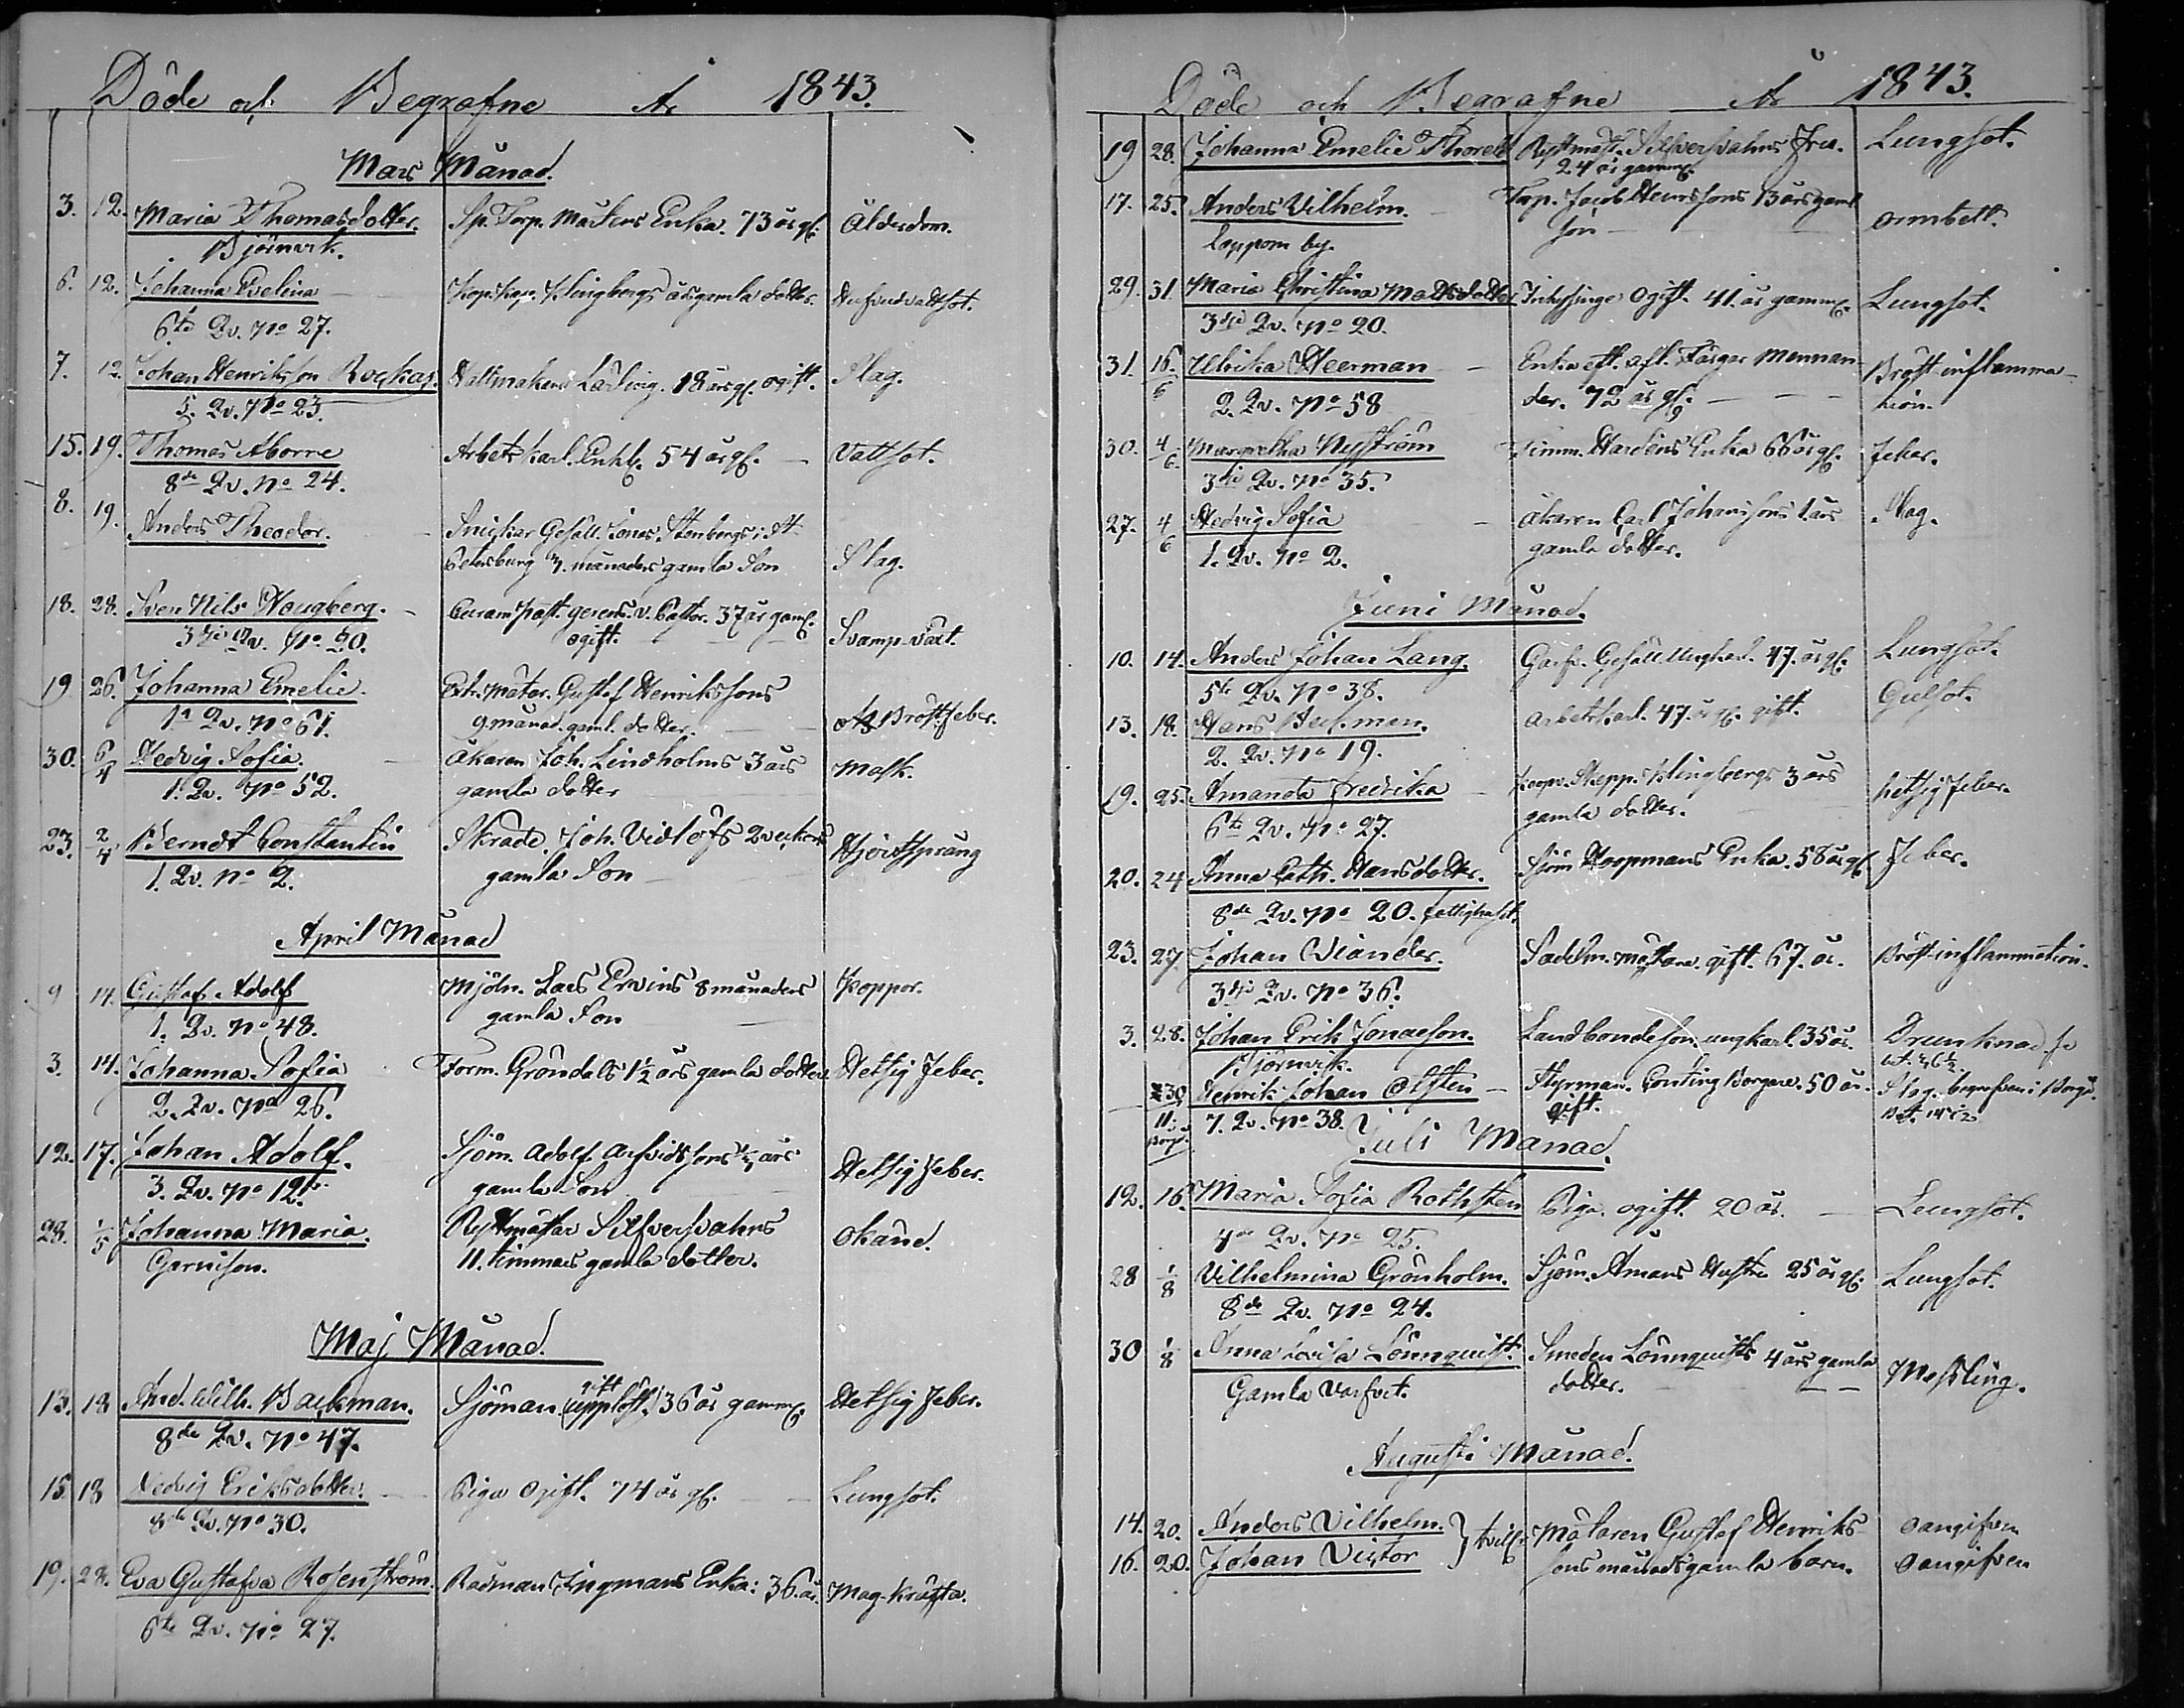 Döde och Begrafne År 1843.
Mars Månad.
3. 12. Maria Thomasdotter. Sp. Torp. Mackens Enka. 73 år gl. Ålderdom.
Björnvik.
6. 12. Johanna Evelina Kop. Kap. Klingbergs årsgamla dotter. Hufvudvattsot.
6te Qv. No 27.
7. 12. Johan Henriksson Rockas. Hattmakare Lärling. 18 år gl. ogift. Slag.
5. Qv. No 23.
15. 19. Thomas Aborre Arbetskarl. Enkl. 54 år gl. Vattsot.
8de Qv. No 24.
8. 19. Anders Theodor. Snickar Gesäll. Jonas Stenbergs i St
Petersburg 7. månaders gamla Son Slag.
18. 28. Sven Nils Hougberg. past. gerens. v. Pastor. 37 år gaml.
3dje Qv. No 20. ogift. Svamp-växt.
19. 26. Johanna Emelie. Mätar. Gustaf Henrikssons
1a Qv. No 61. 9 månad. gaml. dotter. Bröstfeber.
30. 6/4 Hedvig Sofia. åkaren Joh. Lindholms 3 års
1. Qv. No 52. gamla dotter Mask.
23. 2/4 Berndt Constantin Skrädd. Joh. Vidlöfs 2 veckors
1. Qv. No 2. gamla Son Hjertsprång
April Månad
9 14. Gustaf Adolf Mjöln. Lars Ervins 8 månaders
1. Qv. No 48. gamla Son Koppor.
3. 14. Johanna Sofia Form. Gröndals 1½ års gamla dotter Hetsig Feber.
2. Qv. No 26.
12. 17. Johan Adolf. Sjöm. Adolf Arfvidssons års
3. Qv. No 12. gamla Son Hetsig Feber.
28. 1/5 Johanna Maria. Rystmästar Silfversvahns
Garnison. 11. timmars gamla dotter. Okänd.
Maj Månad.
13. 18 And. Wilh. Backman. Sjöman. gift (upplöst.) 36 år gamml. Hetsig Feber.
8de Qv. No 47.
15 18 Hedvig Eriksdotter. Piga ogift. 74 år gl. Lungsot.
8de Qv. No 30.
19. 28. Eva Gustafva Rosenström. Rådman Ingmans Enka: 36. år. Mag-kräfta.
6te Qv. No 27.
Döde och Begrafne År 1843.
19 28. Johanna Emelie Thoreld Rystmäst. Silfversvahns Fru. Lungsot.
24 år gamml.
17. 25. Anders Vilhelm. Torp. Jacob Henrssons 13 års gaml
Loppom by. Son ormbett.
29. 31. Maria Christina Mattsdotter Inhysinge ogift. 41. år gamml. Lungsot.
3dje Qv. No 20.
31. 16/6 Ulrika Heerman Enka eft. afl. Färgar Mennan-
2. Qv. No 58 der. 72 år gl. Bröst-inflamma-
tion.
30. 4/6. Margretha Nyström Timm. Hardens Enka 66 år gl. Feber.
3dje Qv. No 35.
27. 4/6 Hedvig Sofia åkaren Carl Johanssons 1. års
1. Qv. No 2. gamla dotter. Slag.
Juni Månad.
10. 14. Anders Johan Lang. Garfv. Gesäll ungkarl. 47. år gl. Lungsot.
5te Qv. No 38.
13. 18. Hans Beckman. arbetskarl. 47. år gl. gift. Gulsot.
2. Qv. No 19.
19. 25. Amanda Fredrika Koopv. Skepp. Klingbergs 3 års
6te Qv. No 27. gamla dotter. hetsig feber.
20. 24 Anna Cath. Hansdotter. Sjöm Koopmans Enka. 58 år gl. Feber.
8de Qv. No 20. fattighuset.
23. 27. Johan Viander. Sadelm. mästare. gift. 67. år. Bröst-inflammation.
3dje Qv. No 36.
3. 28. Johan Erik Jonaeson. Landbondeson. ungkarl. 35 år. Drunknad
Björnvik.
30 Henrik Johan Olsten Styrman. Conting Borgare. 50 år. Slag. begrafven i Borgå.
11. Borgå 7. Qv. No 38. gift.
Juli Månad.
12. 16. Maria Sofia Rothsten Piga. ogift. 20 år. Lungsot.
4de Qv. No 25.
28 1/8 Vilhelmina Grönholm. Sjöm. Åmans Hustru 25 år gl. Lungsot.
8de Qv. No 24.
30 1/8 Anna Lovisa Lönnquist. Smeden Lönnquists 4 års gamla
Gamla Varfvet. dotter. Messling.
Augusti Månad.
14. 20. Anders Vilhelm. } tvill. Mätaren Gustaf Henriks- oangifven
16. 20. Johan Victor sons månadsgamla barn. oangifven